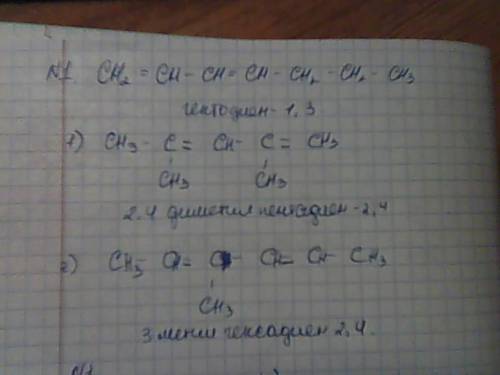 №1. CH₂ = CH - CH = CH - CH₂ - CH₂ - CH₃
гептодиен - 1,3
1) CH₃ - C = CH - C = CH₃
CH₃ CH₃
2,4 диметил пентадиен - 2,4
2) CH₃ - CH = C - CH = CH - CH₃
CH₃
3 метил гексадиен 2,4.